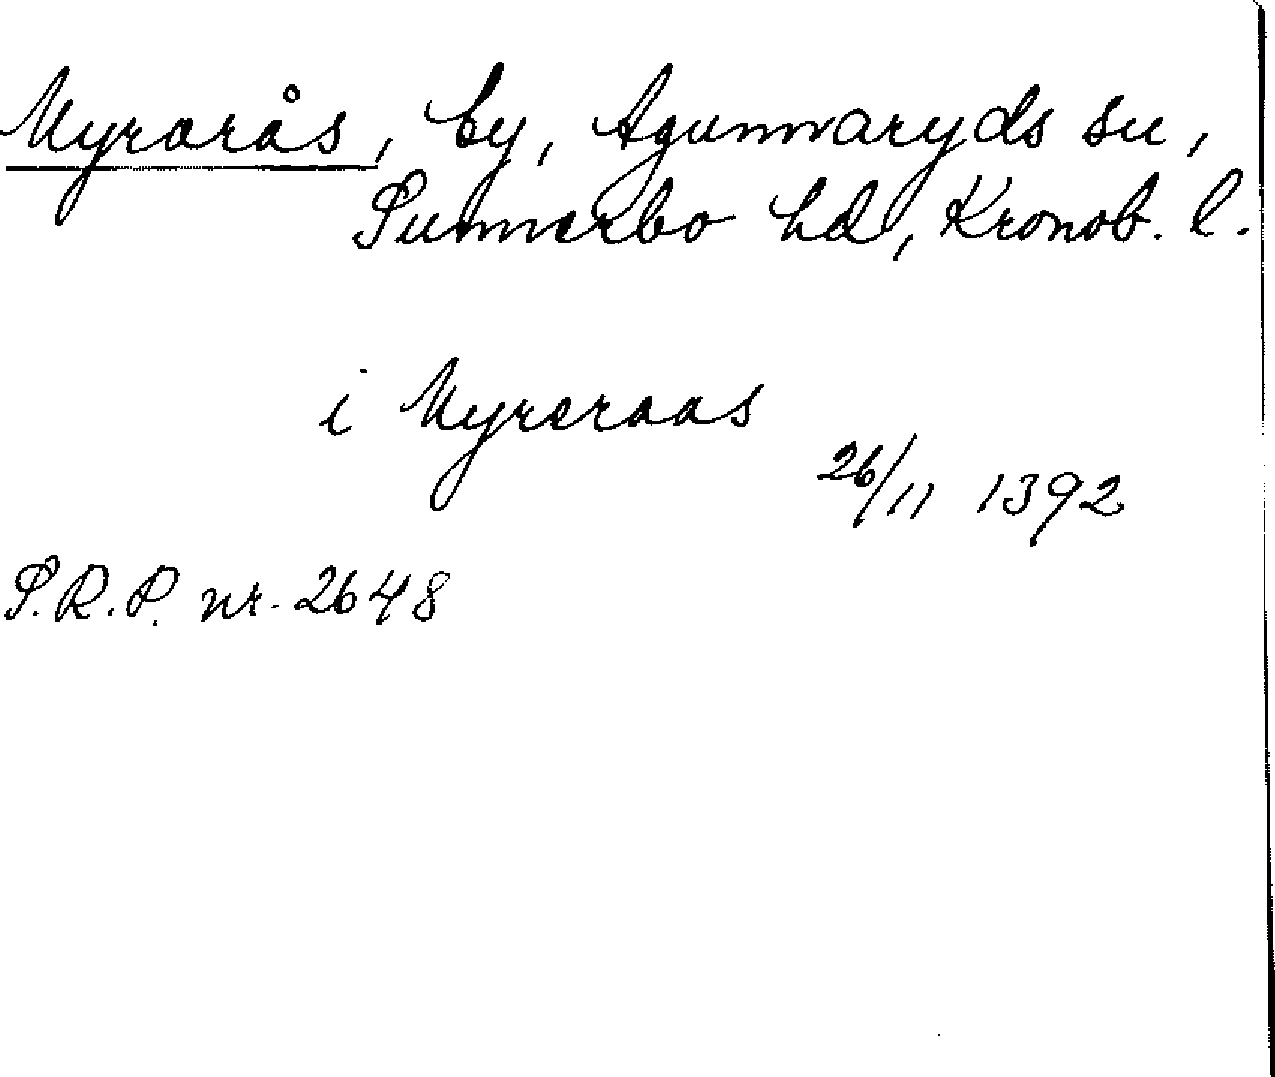 Myrarås, by, Agunnaryds sn,
Sunnerbo hd, Kronob. l.
i Myreraas
26/11 1392
S.R.P. nr. 2648